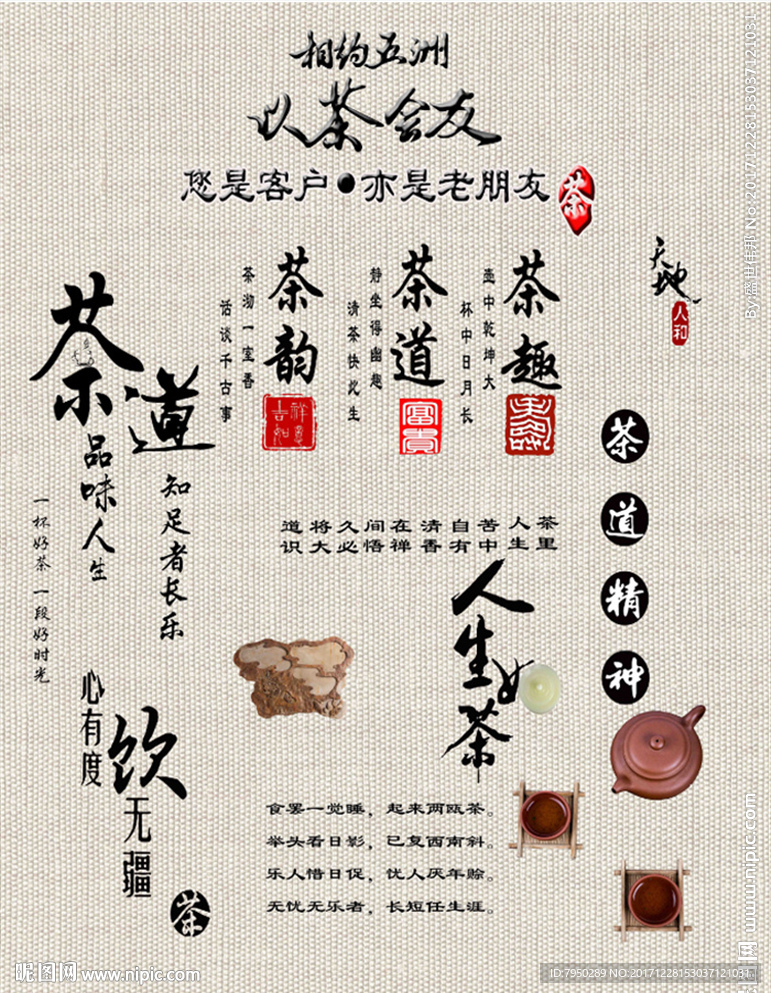 相约五洲
以茶会友
您是客户●亦是老朋友
茶
天地
人和
茶趣
壶中乾坤大
杯中日月长
茶道
静坐得幽趣
清茶快此生
富貴
茶韵
茶沏一室香
话谈千古事
吉祥如意
茶道
品味人生
知足者长乐
一杯好茶一段好时光
茶道精神
茶里人生苦中自有清香在禅间悟久必将大道识
人生如茶
心有度
饮无疆
茶
食罢一觉睡，起来两瓯茶。
举头看日影，已复西南斜。
乐人惜日促，忧人厌年赊。
无忧无乐者，长短任生涯。
昵图网 www.nipic.com
昵图网 www.nipic.com
ID:7950289 NO:20171228153037121031